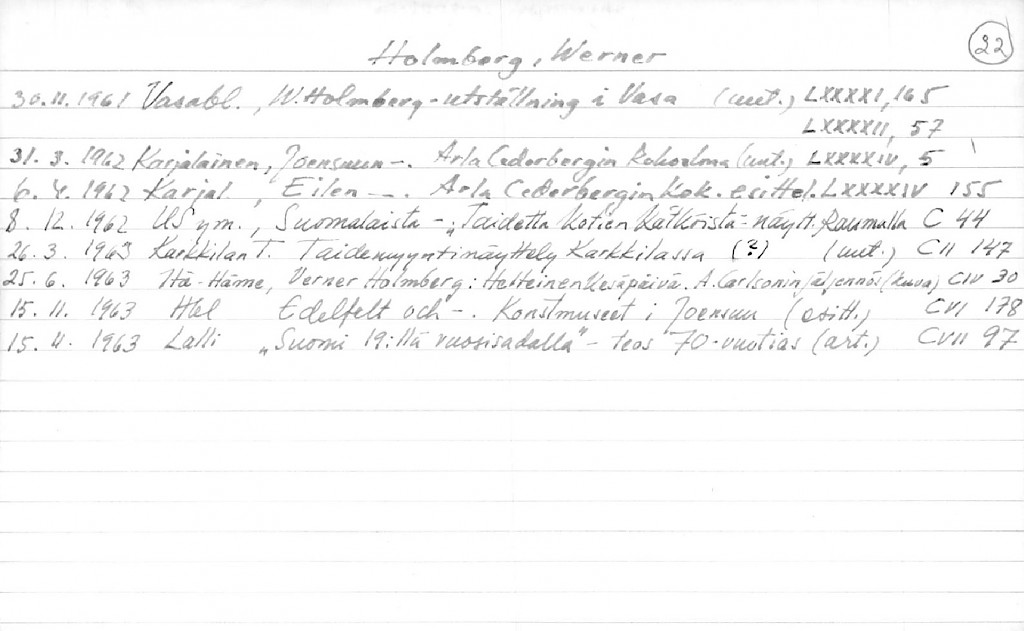 22
Holmberg, Werner
30.11.1961 Vasabl., W. Holmberg-utställning i Vasa (uut.) LXXXXI, 165
LXXXXII, 57
31. 3. 1962 Karjalainen, Joensuun –. Arla Cederbergin kokoelma (uut.) LXXXXIV, 5
6. 4. 1962 Karjal., Eilen –. Arla Cederbergin kok. esittel. LXXXXIV 155
8. 12. 1962 US ym., Suomalaista –. "Taidetta Kotien Kätköistä"-näytt. Raumalla C 44
26. 3. 1963 Karkkilan T. Taidemyyntinäyttely Karkkilassa (?) (uut.) CII 147
25. 6. 1963 Itä-Häme, Verner Holmberg: Helteinen kesäpäivä. A. Carlsonin jäljennös (kuva) CIV 30
15. 11. 1963 Hbl Edelfelt och –. Konstmuseet i Joensuu (esitt.) CVI 178
15. 11. 1963 Lalli „Suomi 19:llä vuosisadalla"- teos 70-vuotias (art.) CVII 97